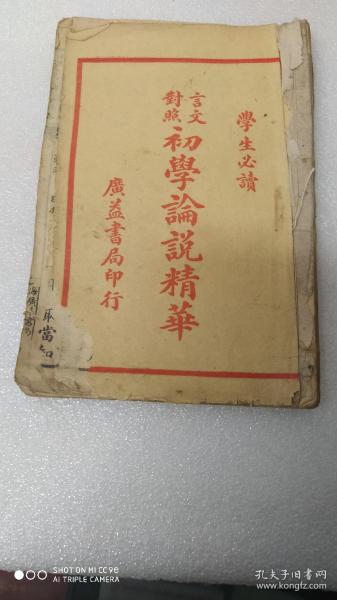 學生必讀
言文
對照
初學論說精華
廣益書局印行
當知
SHOT ON MI CC 9E
AI TRIPLE CAMERA
孔夫子旧书网
www.kongfz.com